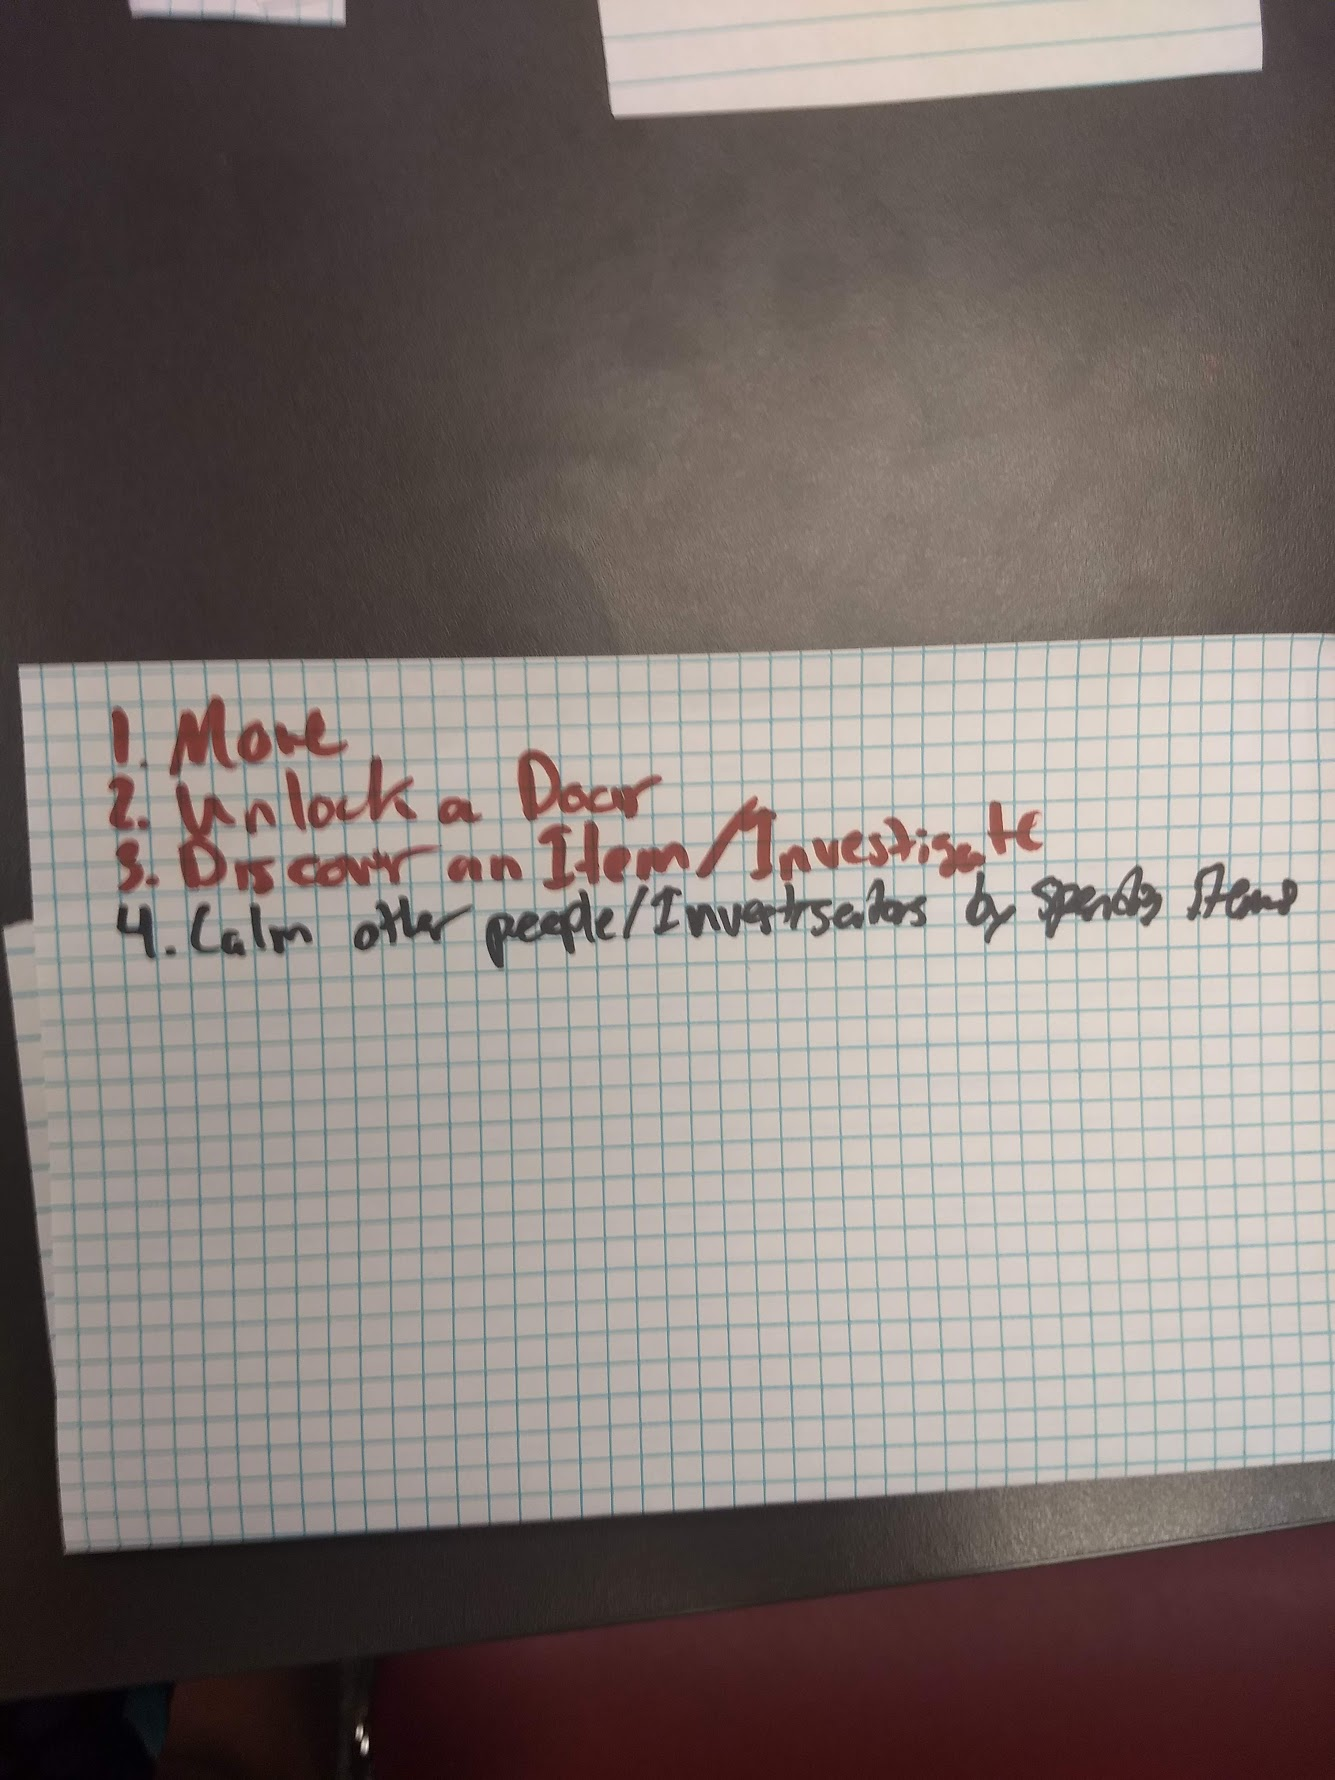 1. Move
2. Unlock a Door
3. Discover an Item/Investigate
4. Calm other people/Investigators by spending items